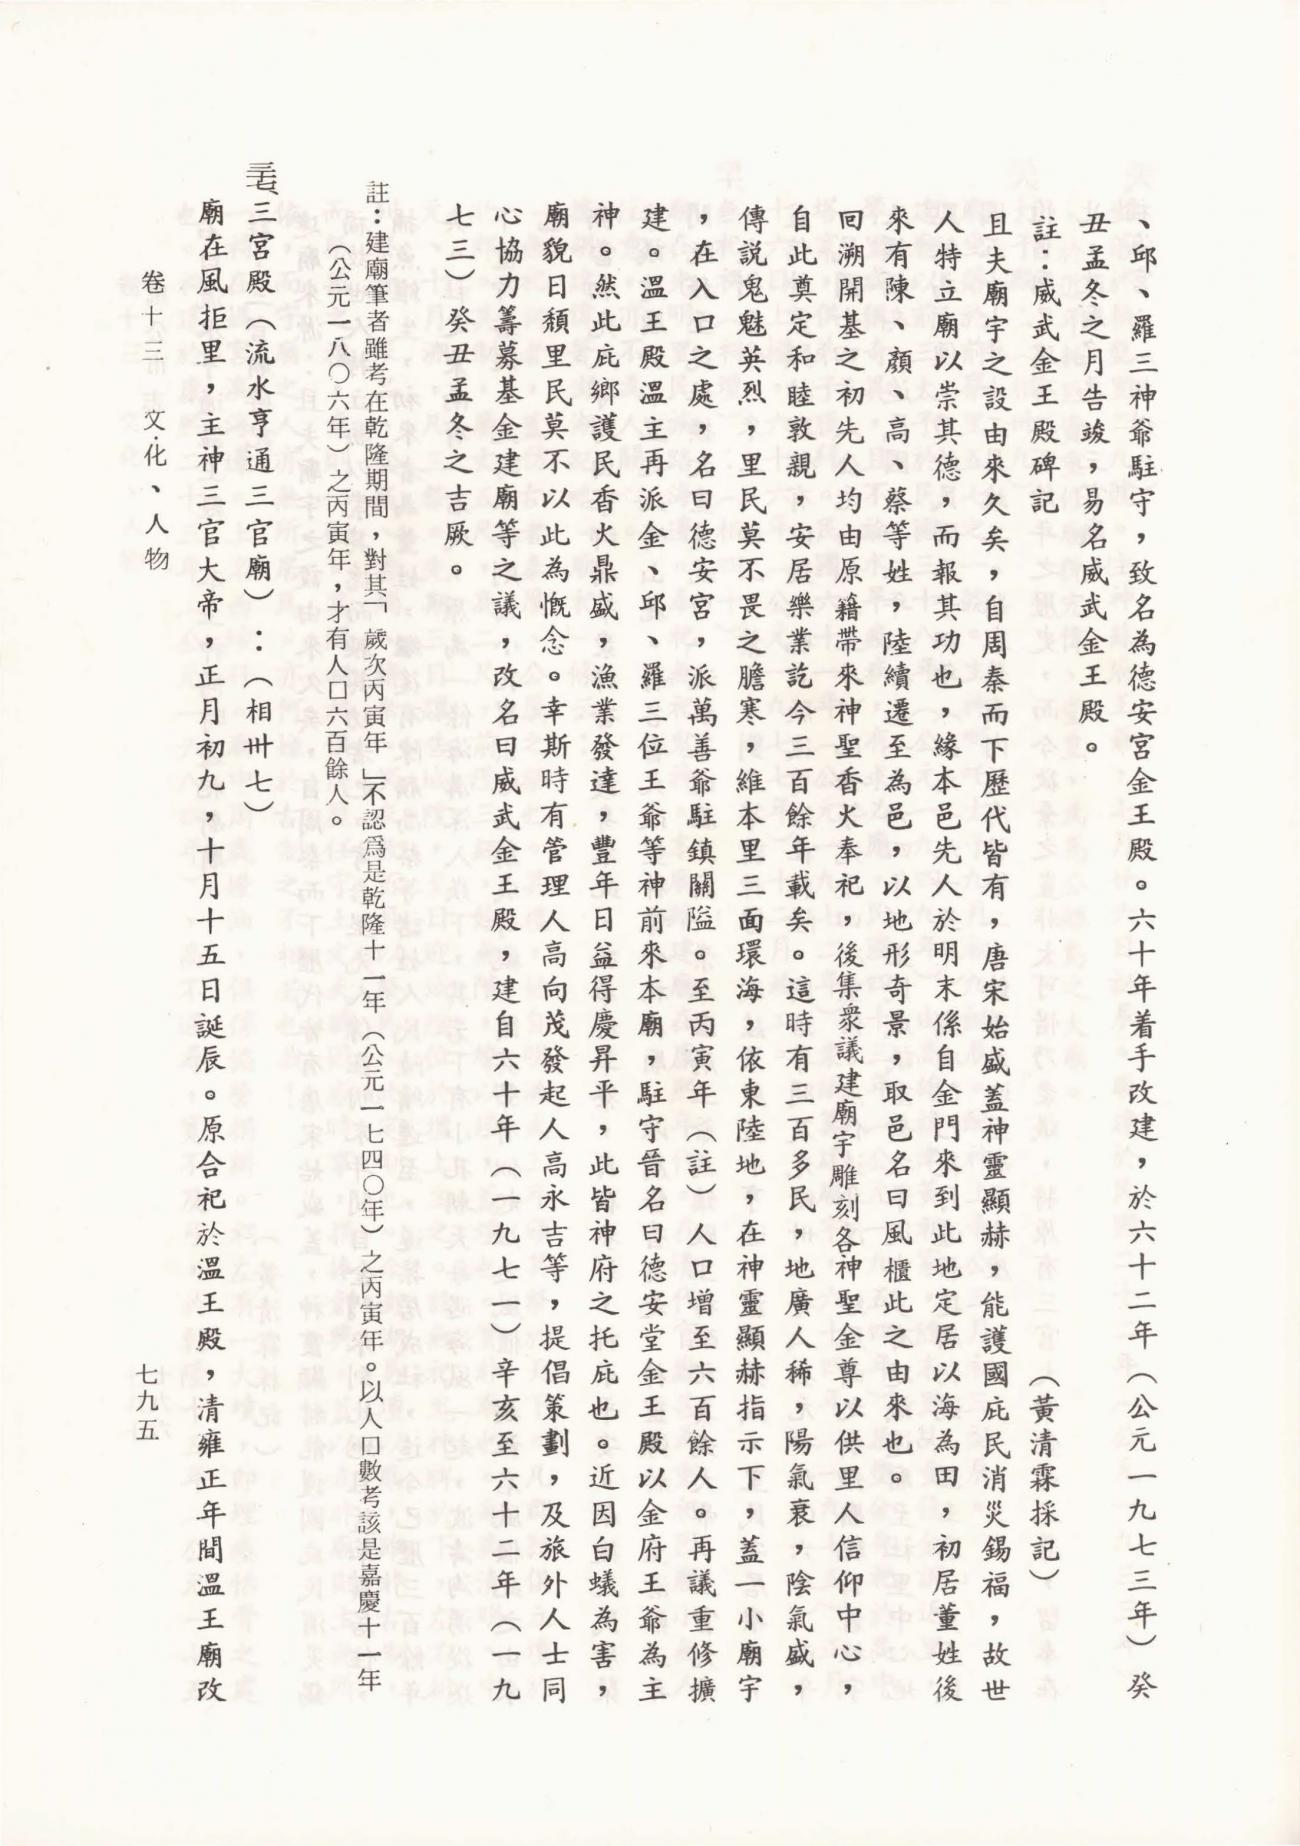 、邱、羅三神爺駐守，致名為德安宮金王殿。六十年着手改建，於六十二年（公元一九七三年）癸
丑孟冬之月告竣，易名威武金王殿。
註：威武金王殿碑記　（黃清霖採記）
且夫廟宇之設由來久矣，自周秦而下歷代皆有，唐宋始盛蓋神靈顯赫，能護國庇民消災錫福，故世
人特立廟以崇其德，而報其功也，緣本邑先人於明末係自金門來到此地定居以海為田，初居董姓後
來有陳、顏、高、蔡等姓，陸續遷至為邑，以地形奇景，取邑名曰風櫃此之由來也。
回溯開基之初先人均由原籍帶來神聖香火奉祀，後集衆議建廟宇雕刻各神聖金尊以供里人信仰中心，
自此奠定和睦敦親，安居樂業訖今三百餘年載矣。這時有三百多民，地廣人稀，陽氣衰，陰氣盛，
傳説鬼魅英烈，里民莫不畏之膽寒，維本里三面環海，依東陸地，在神靈顯赫指示下，蓋一小廟宇
，在入口之處，名曰德安宮，派萬善爺駐鎮關隘。至丙寅年（註）人口增至六百餘人。再議重修擴
建。溫王殿溫主再派金、邱、羅三位王爺等神前來本廟，駐守晉名曰德安堂金王殿以金府王爺為主
神。然此庇鄉護民香火鼎盛　漁業發達，豐年日益得慶昇平，此皆神府之托庇也。近因白蟻為害，
廟貌日頹里民莫不以此為慨念。幸斯時有管理人高向茂發起人高永吉等，提倡策劃，及旅外人士同
心協力籌募基金建廟等之議，改名曰威武金王殿，建自六十年（一九七一）辛亥至六十二年（一九
七三）癸丑孟冬之吉厥。
註：建廟筆者雖考在乾隆期間，對其「歲次丙寅年」不認爲是乾隆十一年（公元一七四〇年）之丙寅年。以人口數考該是嘉慶十一年
（公元一八〇六年）之丙寅年，才有人口六百餘人。
三宮殿（流水亨通三官廟）：（相卅七）
廟在風拒里，主神三官大帝，正月初九，十月十五日誕辰。原合祀於溫王殿，清雍正年間溫王廟改
卷十三　文化、人物
七九五